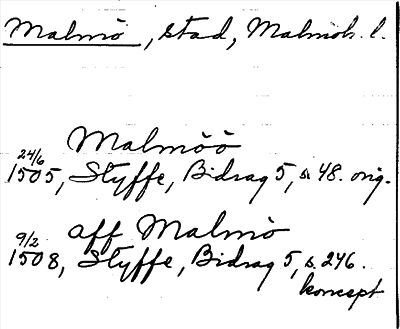 Malmö, stad, Malmöh. l.
Malmöö
24/6
1505, Styffe, Bidrag 5, s. 48. orig.
aff Malmö
9/2
1508, Styffe, Bidrag 5, s. 246.
koncept